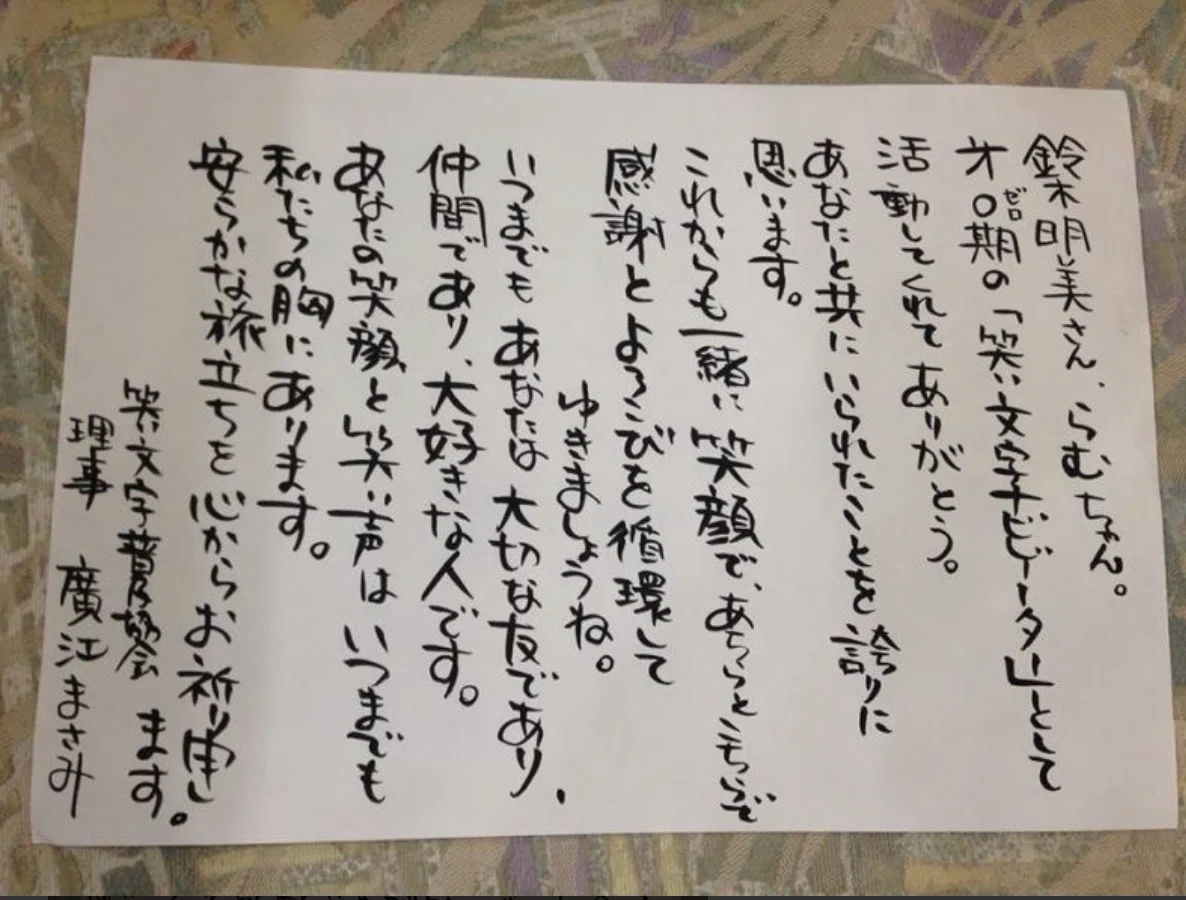 鈴木明美さん、らむちゃん。
才0期の「笑い文字ナビータ」として
ゼロ
活動してくれて ありがとう。
あなたと共に いられたことを 誇りに
思います。
これからも 一緒に 笑顔で、あちらとこちらで
感謝と よろこびを 循環して
ゆきましょうね。
いつまでも あなたは 大切な友であり、
仲間であり、大好きな人です。
あなたの笑顔と笑い声は いつまでも
私たちの胸に あります。
安らかな旅立ちを 心からお祈り申し
ます。
笑い文字普及協会
理事 廣江まさみ